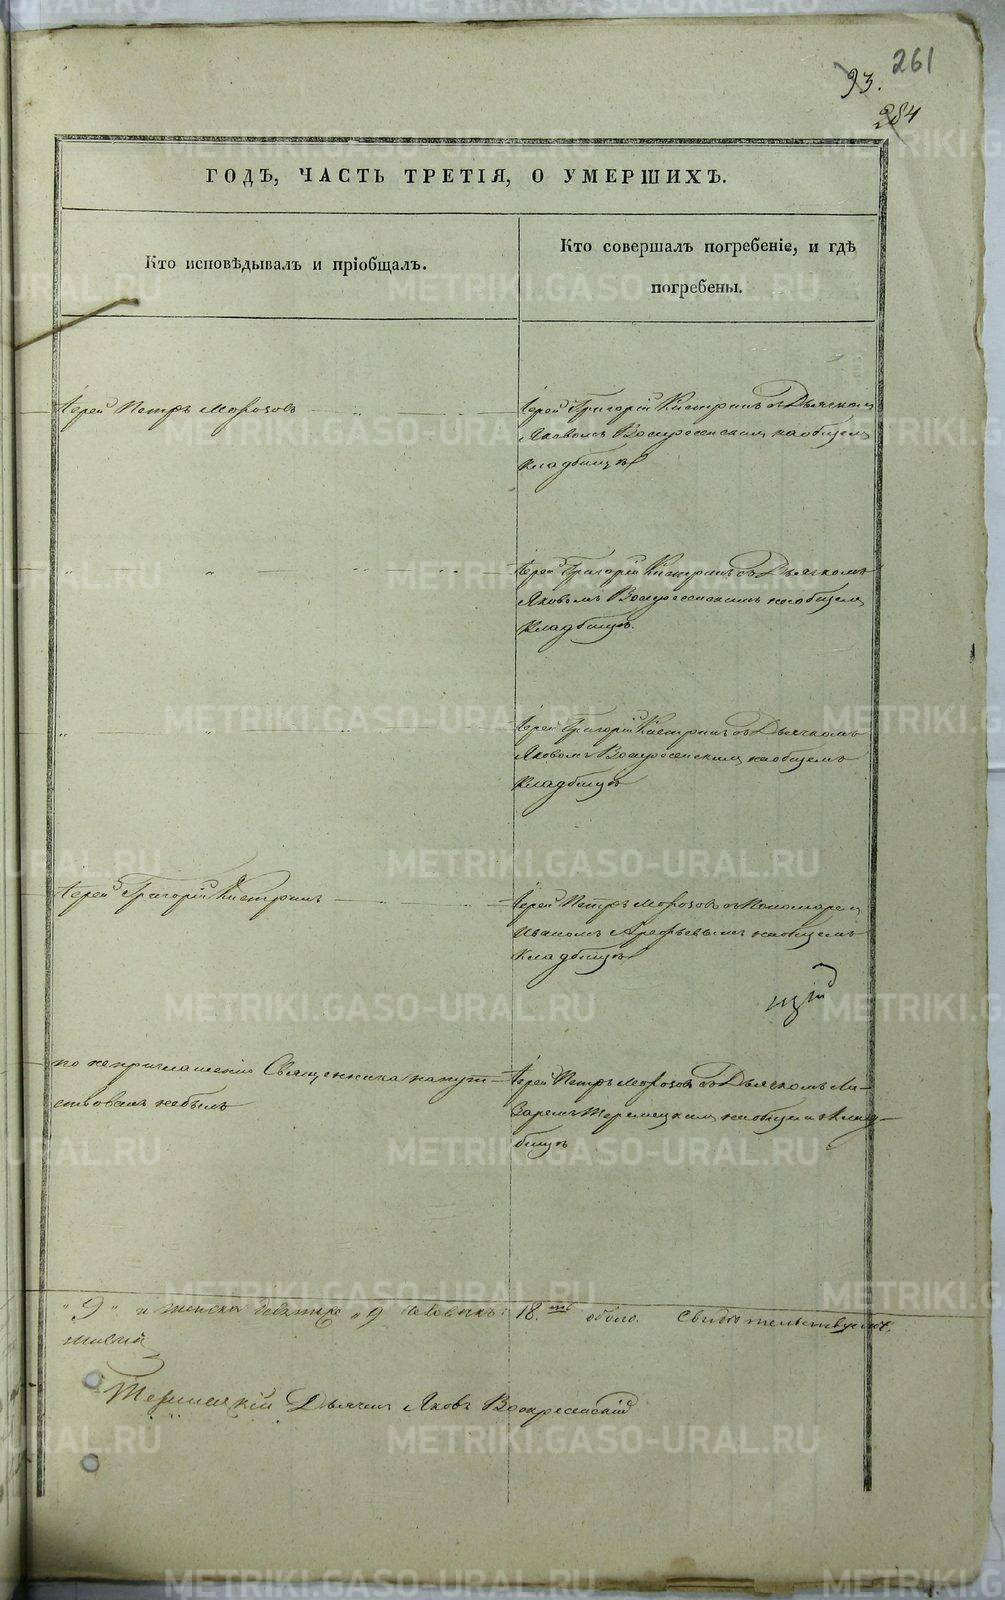 261
93.
284
ГОДЪ, ЧАСТЬ ТРЕТІЯ, О УМЕРШИХЪ.
Кто исповѣдывалъ и пріобщалъ.
Кто совершалъ погребеніе, и гдѣ
погребены.
Іерей Петръ Морозовъ
Іерей Григорій съ Дьячкомъ
Яковомъ Воскресенскимъ на общемъ
кладбищѣ
Іерей Григорій съ Дьячкомъ
Яковомъ Воскресенскимъ на общемъ
кладбищѣ.
Іерей Григорій съ Дьячкомъ
Яковомъ Воскресенскимъ на общемъ
кладбищѣ
Іерей Григорій
Іерей Петръ Морозовъ съ Пономаремъ
Иваномъ Арефьевымъ на общемъ
кладбищѣ
по неприглашенію Священника напут-
ствованъ небылъ
Іерей Петръ Морозовъ съ Дьячкомъ Ла-
заремъ на общемъ клад-
бищѣ
„9„ и женска девять „9 человѣкъ: 18. обоего. свидѣтельствуемъ.
Дьячекъ Яковъ Воскресенскій
METRIKI.GASO-URAL.RU